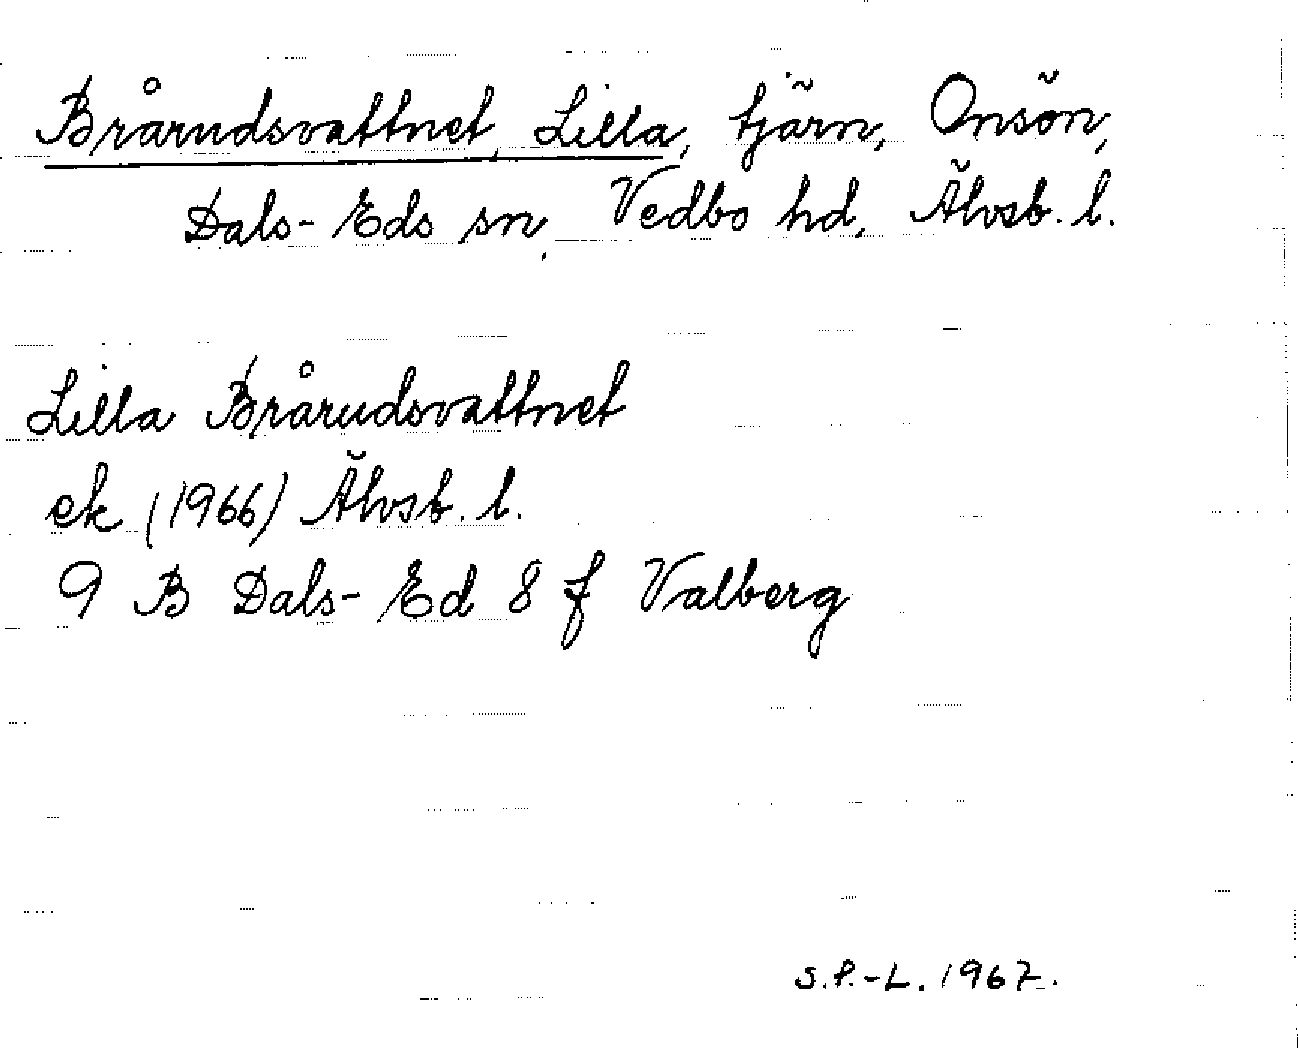 Brårudsvattnet, Lilla, tjärn, Onsön,
Dals-Eds sn, Vedbo hd, Älvsb. l.
Lilla Brårudsvattnet
ek (1966) Älvsb. l.
9 B Dals-Ed 8 f Valberg
S.P.-L. 1967.